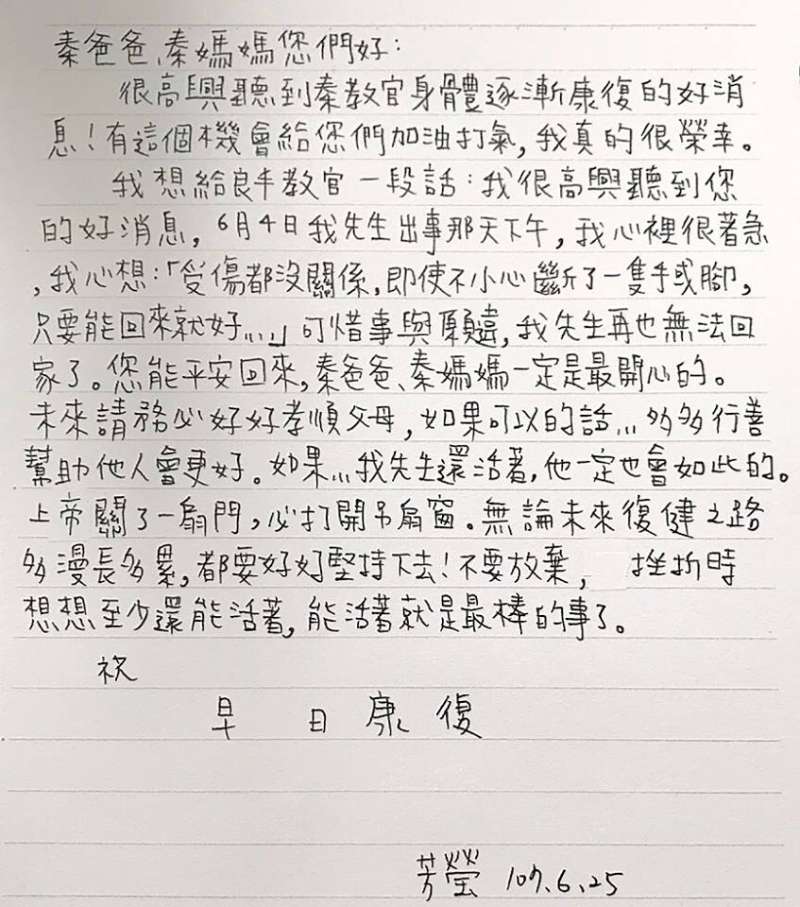 秦爸爸、秦媽媽您們好：
很高興聽到秦教官身體逐漸康復的好消
息！有這個機會給您們加油打氣，我真的很榮幸。
我想給良丰教官一段話：我很高興聽到您
的好消息，6月4日我先生出事那天下午，我心裡很著急
，我心想：「受傷都沒關係，即使不小心斷了一隻手或腳，
只要能回來就好...」可惜事與願違，我先生再也無法回
家了。您能平安回來，秦爸爸、秦媽媽一定是最開心的。
未來請務必好好孝順父母，如果可以的話...多多行善
幫助他人會更好。如果...我先生還活著，他一定也會如此的。
上帝關了一扇門，必打開另扇窗。無論未來復健之路
多漫長多累，都要好好堅持下去！不要放棄， 挫折時
想想至少還能活著，能活著就是最棒的事了。
祝
早日康復
芳瑩 107.6.25